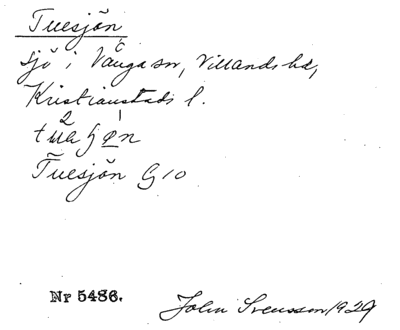 Tuesjön,
sjö i Vånga sn, Villands hd,
Kristianstads l.
Tuesjön G 10
Nr 5486.
John Svensson 1929